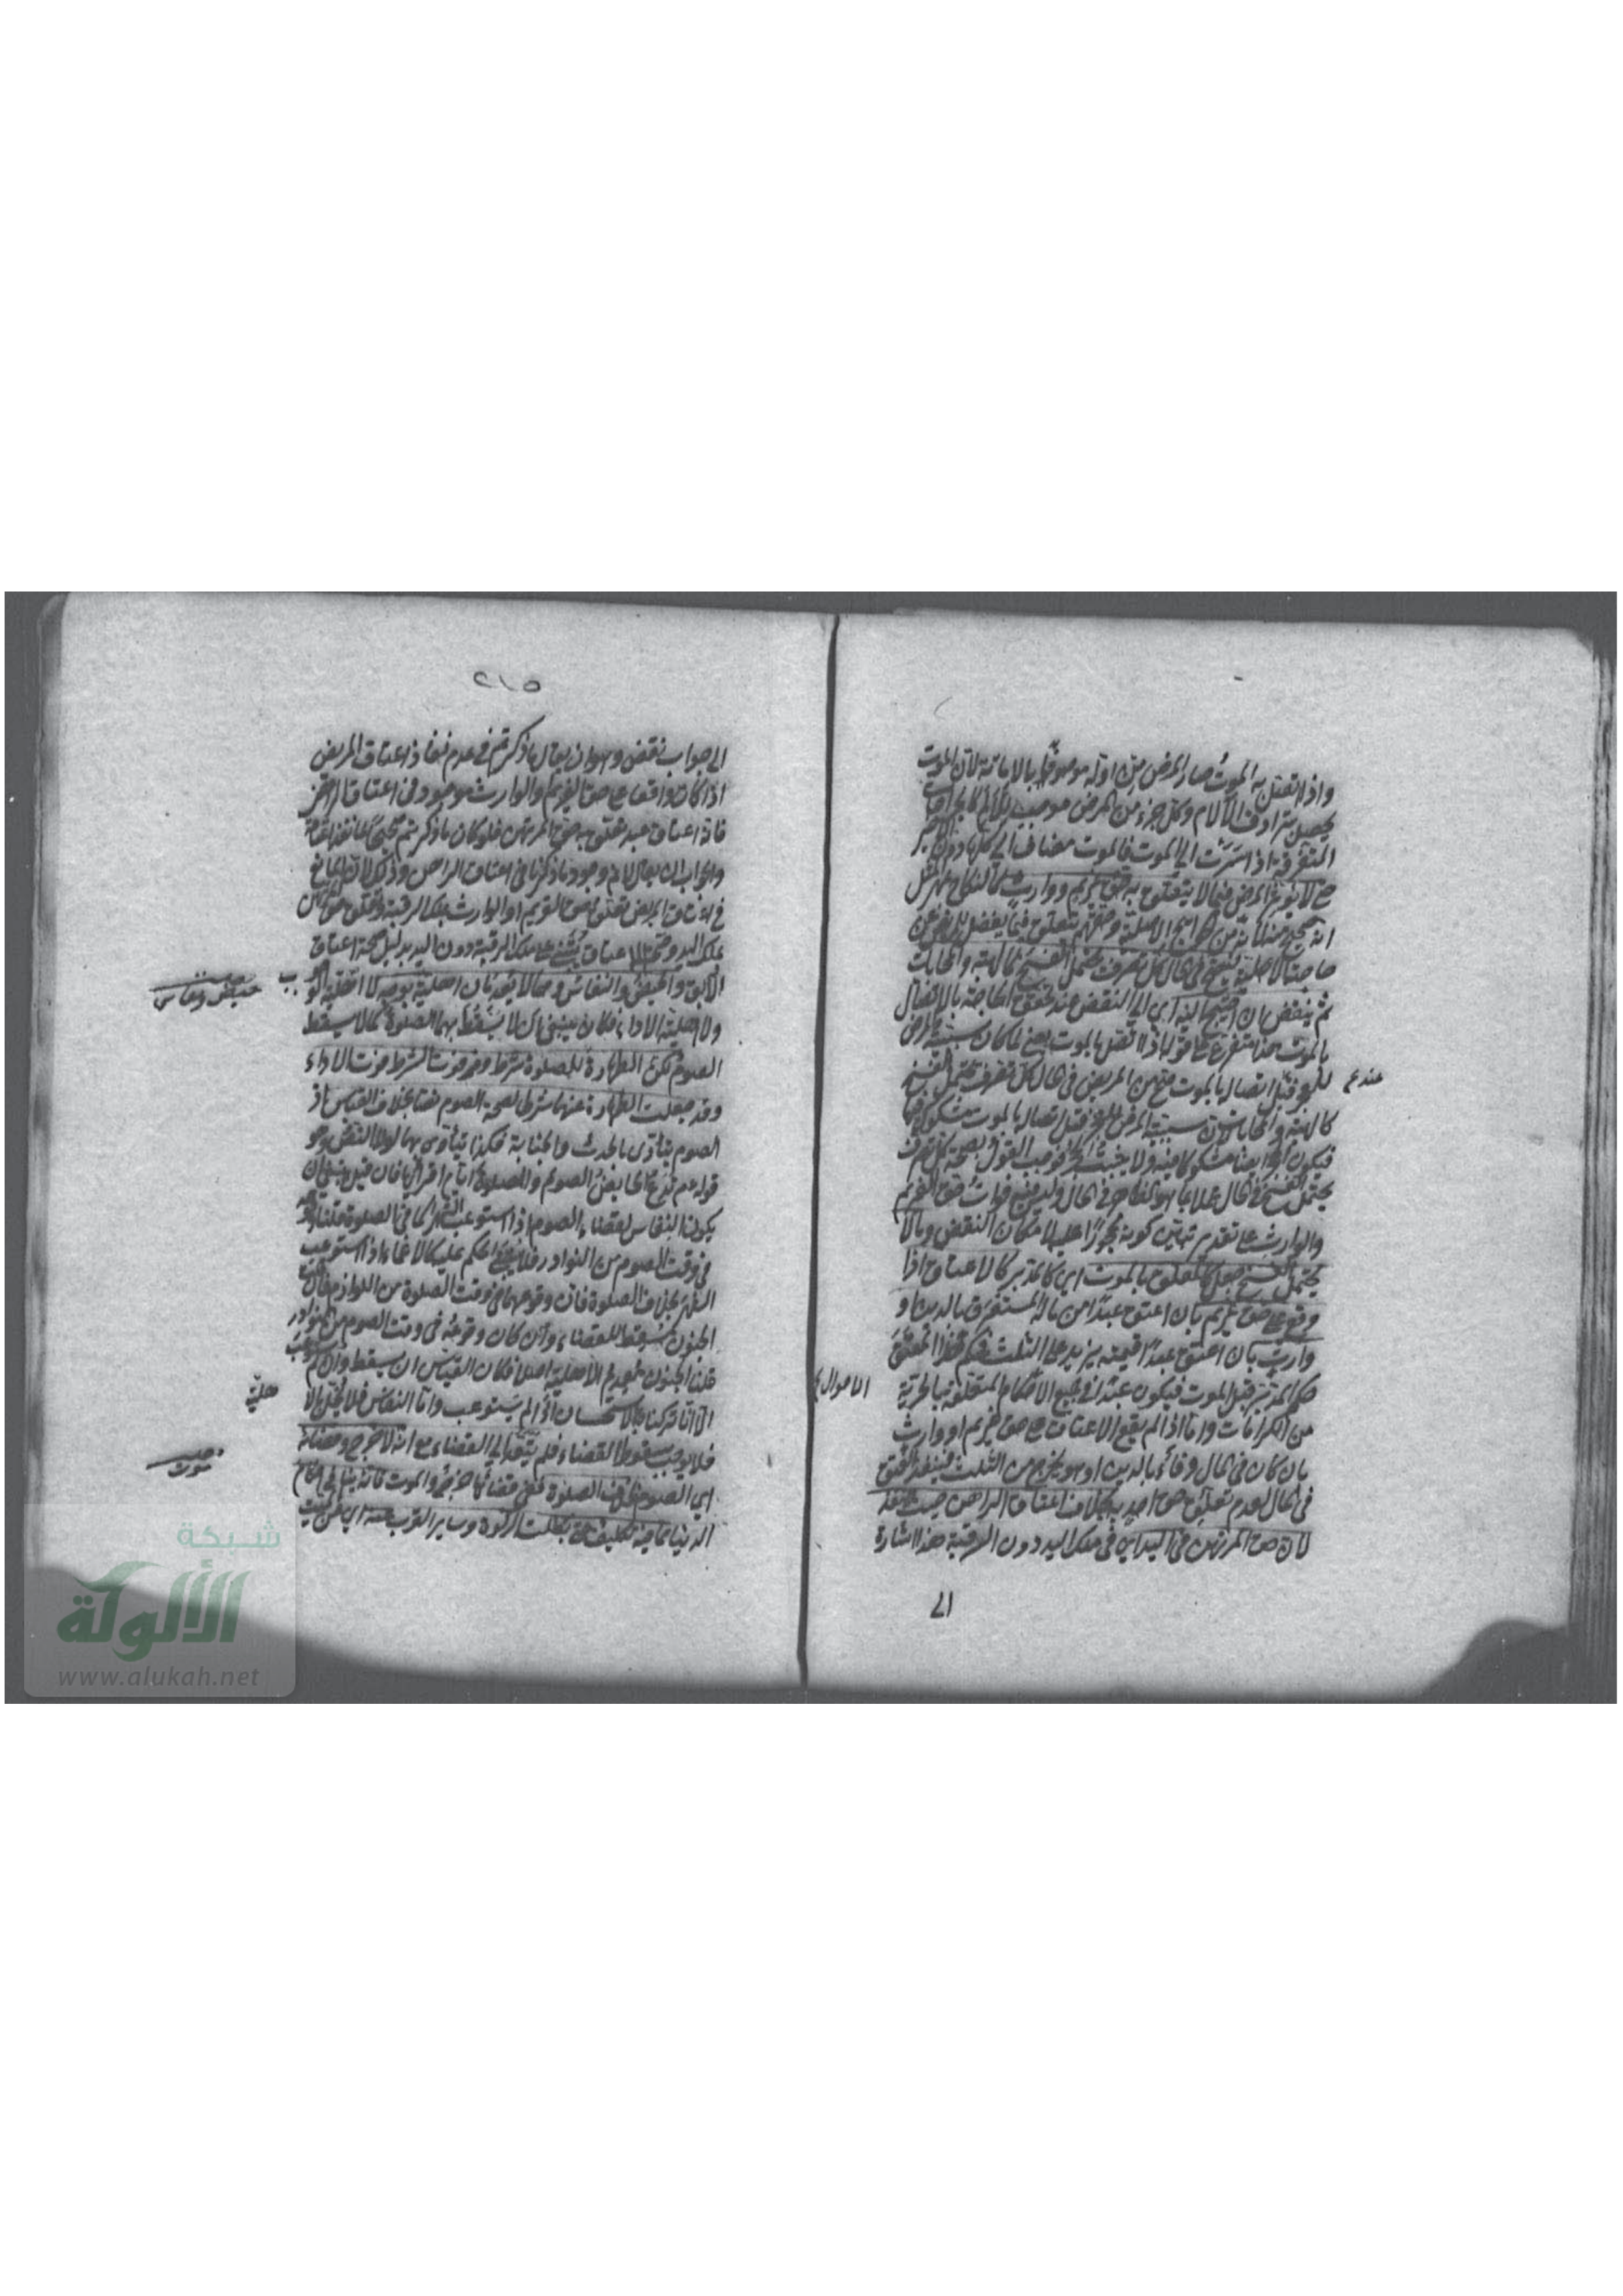 واذا اتصل به الموت صار المرض من اوله موصوفا بالاماتة لان الموت
يحصل بترادف الآلام وكل جزء من المرض موجب
المتفرقة اذا سرت الى الموت فالموت مضاف الى كلها دون الاخير
حتى لا يؤثر المرض فيما لا يتعلق به حق غريم ووارث كالنكاح بمهر المثل
انه صحيح منه لانه من الحوايج الاصلية وحقهم يتعلق فيما يفضل عن
حاجته الاصلية فيصح في الحال كل تصرف يحتمل الفسخ كالهبة والمحابات
ثم ينقض ان احتيج اليه اى الى النقض عند تحقق الحاجة بالاتصال
بالموت هذا متفرع على قوله اذا اتصل بالموت يعنى لما كان سببية المرض
للحجر قبل اتصاله بالموت من المريض في الحال كل تصرف يحتمل الفسخ
عندع
كالهبة والمحابات لان سببية المرض للحجر قبل اتصاله بالموت مشكوك فيها
فيكون الحجر ايضا مشكوكا فيه ولا يثبت الحجر فوجب القول بصحة كل تصرف
يحتمل الفسخ في الحال عملا بما هو الظاهر في الحال وليس فيه فوات حق الغريم
والوارث على تقدم تبين كونه محجورا عليه لامكان النقض وما لا
يحتمل الفسخ جعل كالمعلق بالموت اى كالمدبر كالاعتاق اذا
وقع على حق غريم بان اعتق عبدا من ماله المستغرق بالدين او
وارث بان اعتق عبدا قيمته يزيد على الثلث فحكم هذا المعتق
حكم المدبر قبل الموت فيكون عبدا في جميع الاحكام المتعلقة بالحرية
الاموال
من الكرامات واما اذا لم يقع الاعتاق على حق غريم او وارث
بان كان في المال وفاء بالدين او هو يخرج من الثلث فينفذ العتق
في الحال لعدم تعلق حق احد به بخلاف اعتاق الراهن حيث ينفذ
لان حق المرتهن في اليد اى في ملك اليد دون الرقبة هذا اشارة
الى
٢١٥
الى جواب نقض وهو ان يقال ما ذكرتم في عدم نفاذ اعتاق المريض
اذا كان واقعا على حق الغريم والوارث موجود في اعتاق الراهن
فانه اعتاق عبد تعلق به حق المرتهن فلو كان ما ذكرتم صحيحا لما نفذ اعتاقه
والجواب ان يقال لا نم وجود ما ذكرنا في اعتاق الراهن وذلك لان المانع
في اعتاق المريض تعلق حق الغريم او الوارث بملك الرقبة وتعلق حق المرتهن
بملك اليد وصحة الاعتاق يبتنى على ملك الرقبة دون اليد بدليل صحة اعتاق
الآبق والحيض والنفاس وهما لا يعدمان اهلية بوجه لا اهلية الوجوب
حيض ونفاس
ولا اهلية الاداء فكان ينبغى ان لا يسقط بهما الصلوة كما لا يسقط
الصوم لكن الطهارة للصلوة شرط وفي فوت الشرط فوت الاداء
وقد جعلت الطهارة عنهما شرطا لصحة الصوم نصا بخلاف القياس اذ
الصوم يتأدى بالحدث والجنابة فكذا يتأدى بهما لولا النص وهو
قوله عم تدع الحايض الصوم والصلوة ايام اقرائها فان قيل ينبغى ان
يكون النفاس لقضاء الصوم اذا استوعب الشهر كما في الصلوة قلنا
في وقت الصوم من النوادر فلا يبنى الحكم عليه كالاغماء اذا استوعب
الشهر بخلاف الصلوة فان وقوعها في وقت الصلوة من اللوازم فان قلت
الجنون مسقط للقضاء وان كان وقوعه في وقت الصوم من النوادر
قلنا الجنون معدم الاهلية اصلا فكان القياس ان يسقط وان لم يستوعب
الا انا تركناه بالاستحسان اذا لم يستوعب واما النفاس فلا يخل بالا
هلية
فلا يوجب سقوط القضاء فلم يتعد الى القضاء مع انه لا حرج في قضائه
اى الصوم بخلاف الصلوة ففى قضائها حرج والموت فانه ينافى احكام
موت
الدنيا مما فيه تكليف حتى بطلت الزكوة وساير القرب عنه اى عن الميت
شبكة
الألوكة
www.alukah.net